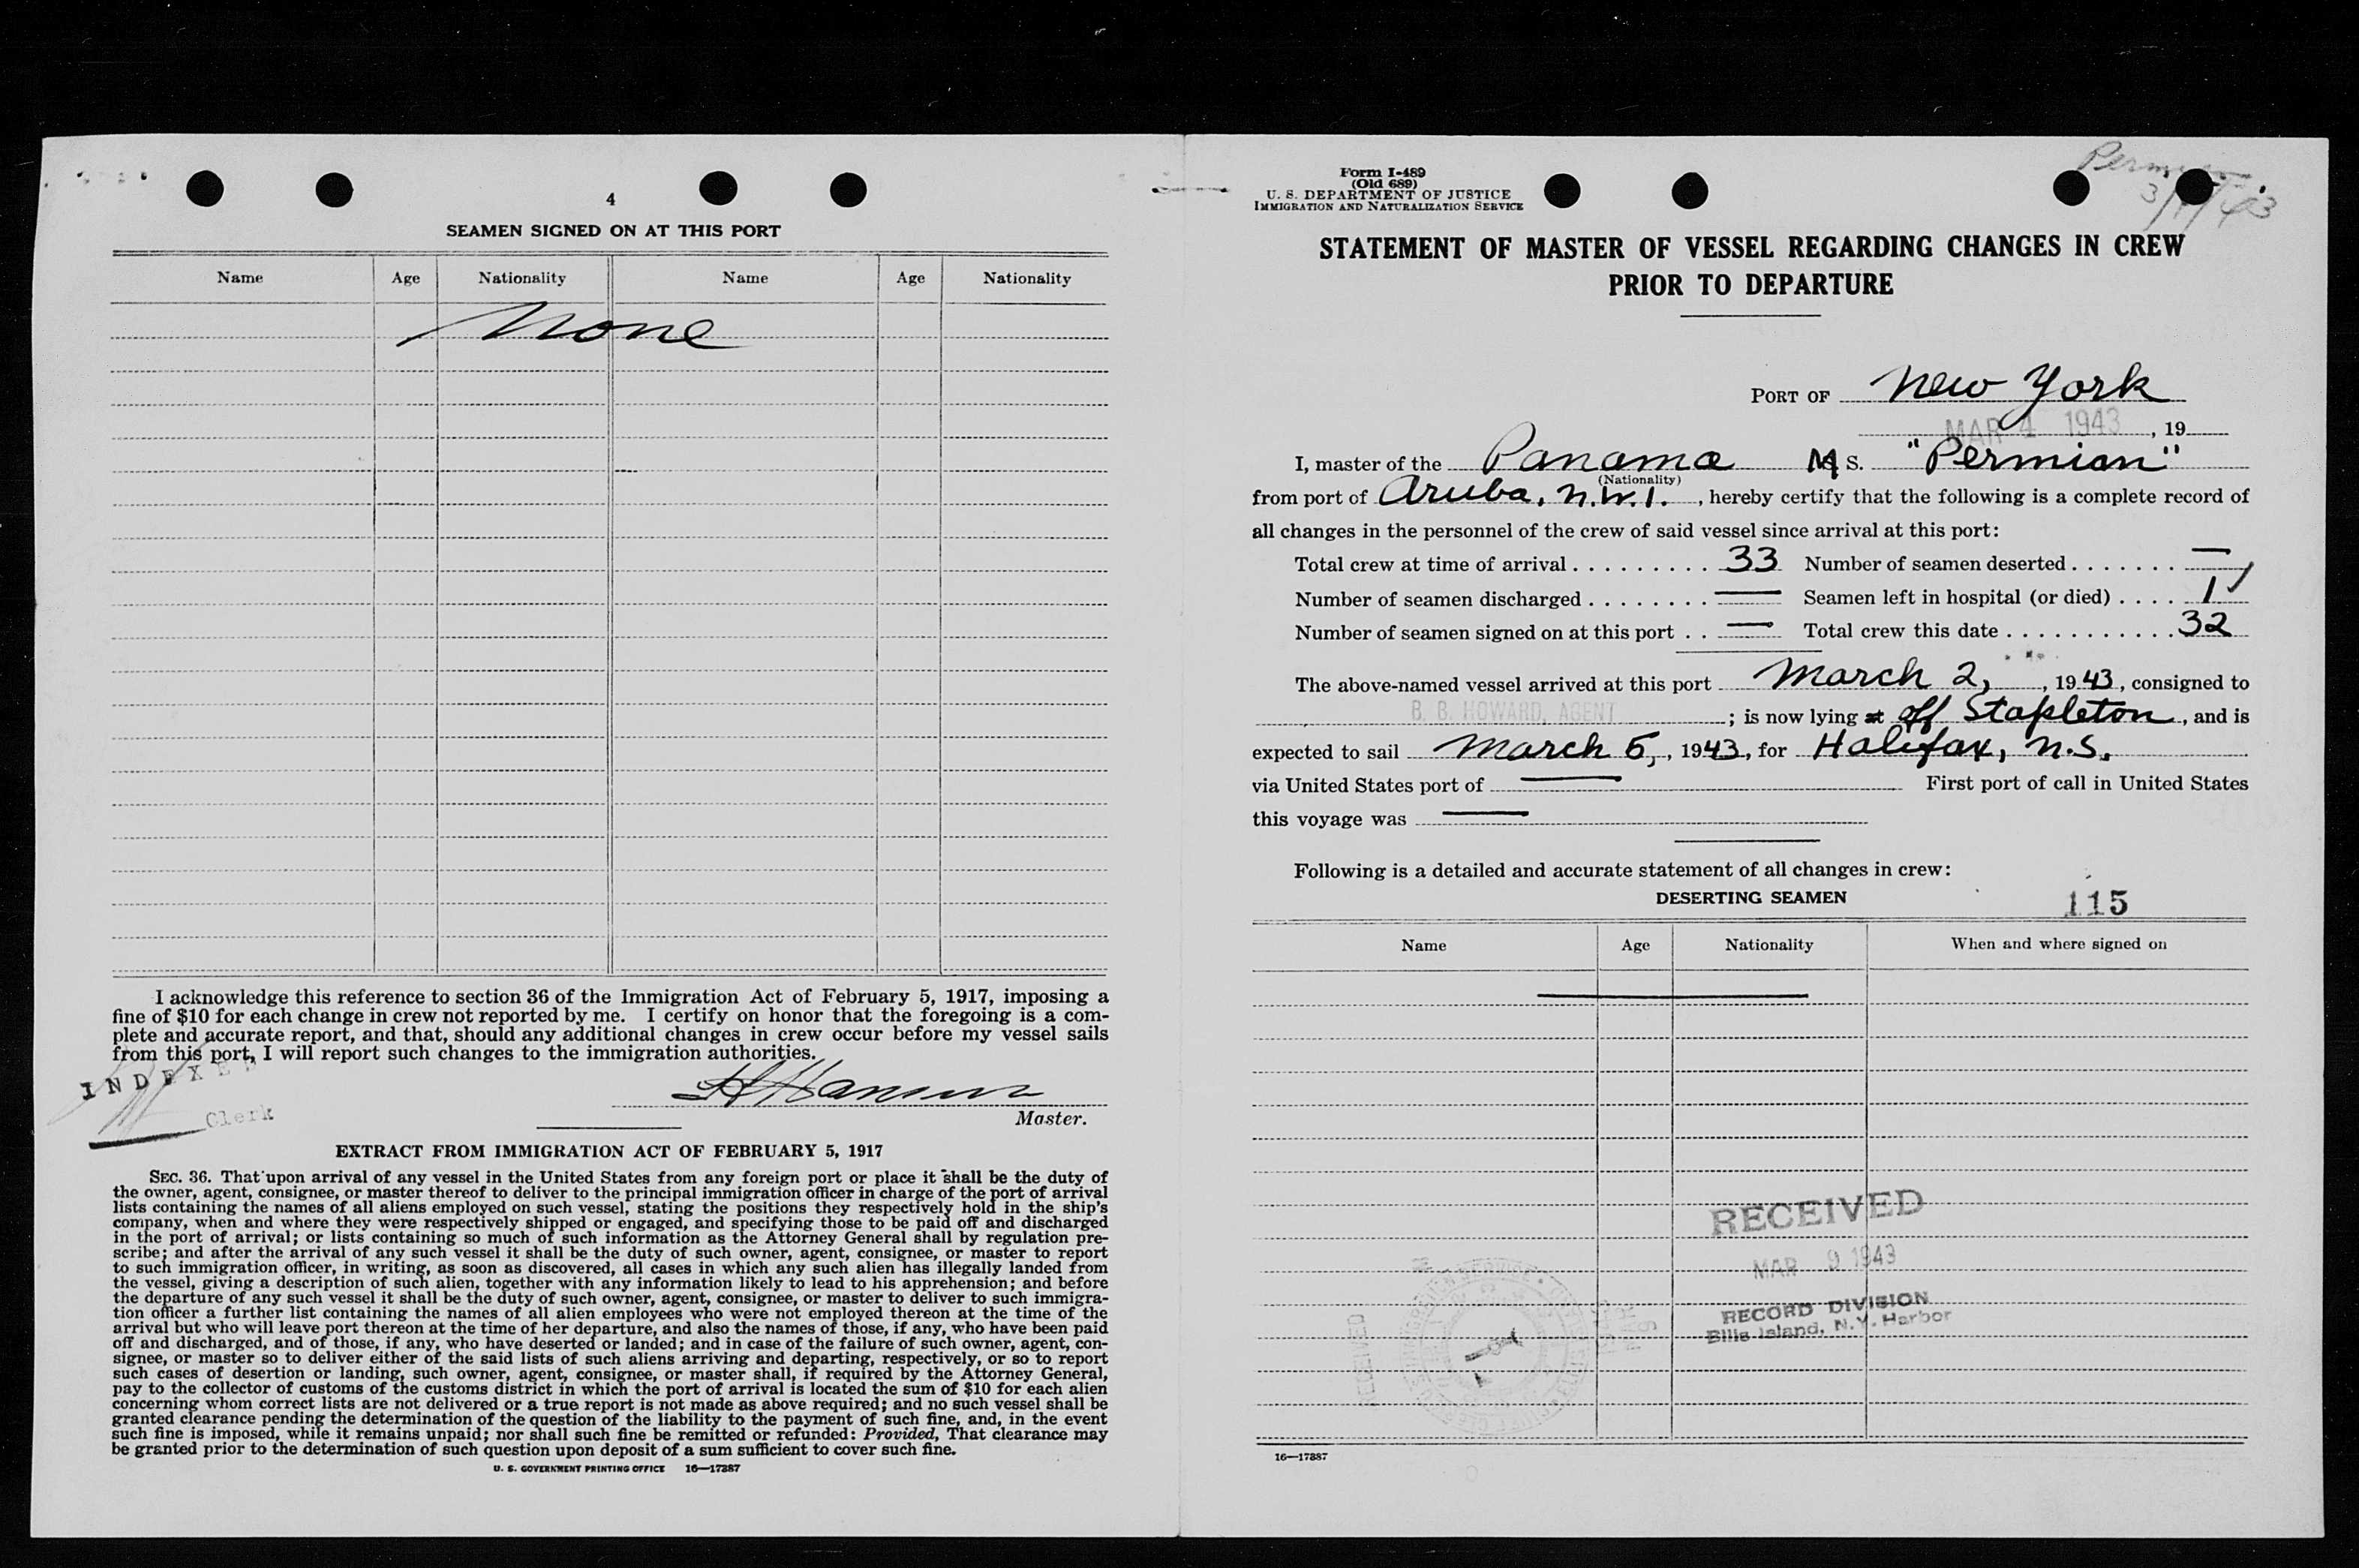 4
SEAMEN SIGNED ON AT THIS PORT
Name Age Nationality Name Age Nationality
None
I acknowledge this reference to section 36 of the Immigration Act of February 5, 1917, imposing a
fine of $10 for each change in crew not reported by me. I certify on honor that the foregoing is a com-
plete and accurate report, and that, should any additional changes in crew occur before my vessel sails
from this port, I will report such changes to the immigration authorities.
INDEXED
Clerk
Master.
EXTRACT FROM IMMIGRATION ACT OF FEBRUARY 5, 1917
SEC. 36. That upon arrival of any vessel in the United States from any foreign port or place it shall be the duty of
the owner, agent, consignee, or master thereof to deliver to the principal immigration officer in charge of the port of arrival
lists containing the names of all aliens employed on such vessel, stating the positions they respectively hold in the ship's
company, when and where they were respectively shipped or engaged, and specifying those to be paid off and discharged
in the port of arrival; or lists containing so much of such information as the Attorney General shall by regulation pre-
scribe; and after the arrival of any such vessel it shall be the duty of such owner, agent, consignee, or master to report
to such immigration officer, in writing, as soon as discovered, all cases in which any such alien has illegally landed from
the vessel, giving a description of such alien, together with any information likely to lead to his apprehension; and before
the departure of any such vessel it shall be the duty of such owner, agent, consignee, or master to deliver to such immigra-
tion officer a further list containing the names of all alien employees who were not employed thereon at the time of the
arrival but who will leave port thereon at the time of her departure, and also the names of those, if any, who have been paid
off and discharged, and of those, if any, who have deserted or landed; and in case of the failure of such owner, agent, con-
signee, or master so to deliver either of the said lists of such aliens arriving and departing, respectively, or so to report
such cases of desertion or landing, such owner, agent, consignee, or master shall, if required by the Attorney General,
pay to the collector of customs of the customs district in which the port of arrival is located the sum of $10 for each alien
concerning whom correct lists are not delivered or a true report is not made as above required; and no such vessel shall be
granted clearance pending the determination of the question of the liability to the payment of such fine, and, in the event
such fine is imposed, while it remains unpaid; nor shall such fine be remitted or refunded: Provided, That clearance may
be granted prior to the determination of such question upon deposit of a sum sufficient to cover such fine.
U. S. GOVERNMENT PRINTING OFFICE 16—17887
Form I-489
(Old 689)
U. S. DEPARTMENT OF JUSTICE
IMMIGRATION AND NATURALIZATION SERVICE
STATEMENT OF MASTER OF VESSEL REGARDING CHANGES IN CREW
PRIOR TO DEPARTURE
PORT OF New York
MAR 4 1943, 19
I, master of the Panama M S. "Permian"
(Nationality)
from port of Aruba, N.W.I., hereby certify that the following is a complete record of
all changes in the personnel of the crew of said vessel since arrival at this port:
Total crew at time of arrival . . . . . . . . . 33 Number of seamen deserted . . . . . . . —
Number of seamen discharged . . . . . . . . — Seamen left in hospital (or died) . . . . 1 ✓
Number of seamen signed on at this port . . — Total crew this date . . . . . . . . . . . 32
The above-named vessel arrived at this port March 2, , 1943, consigned to
B. B. HOWARD, AGENT ; is now lying at off Stapleton, and is
expected to sail March 5, , 1943, for Halifax, N.S.
via United States port of — First port of call in United States
this voyage was —
Following is a detailed and accurate statement of all changes in crew:
DESERTING SEAMEN
115
Name Age Nationality When and where signed on
RECEIVED
MAR 9 1943
RECORD DIVISION
Ellis Island, N.Y. Harbor
RECEIVED
16—17887